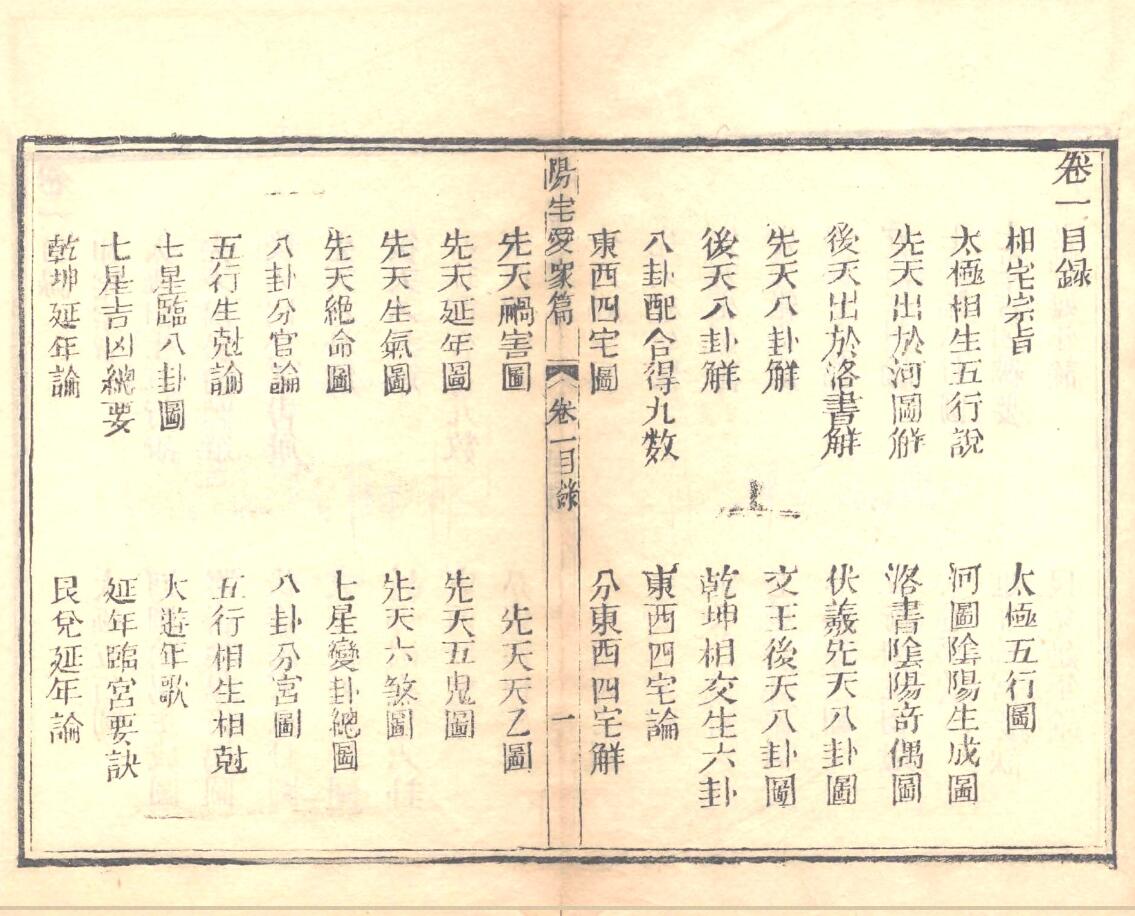 卷一目録
相宅宗旨 太極五行圖
太極相生五行說 河圖陰陽生成圖
先天出於河圖解 洛書陰陽奇偶圖
後天出於洛書解 伏羲先天八卦圖
先天八卦解 文王後天八卦圖
後天八卦解 乾坤相交生六卦
八卦配合得九数 東西四宅論
東西四宅圖 分東西四宅解
陽宅愛家篇 卷一目錄 一
先天禍害圖 先天天乙圖
先天延年圖 先天五鬼圖
先天生氣圖 先天六煞圖
先天絶命圖 七星變卦總圖
八卦分官論 八卦分宮圖
五行生尅論 五行相生相尅
七星臨八卦圖 大遊年歌
七星吉凶總要 延年臨宮要訣
乾坤延年論 艮兌延年論